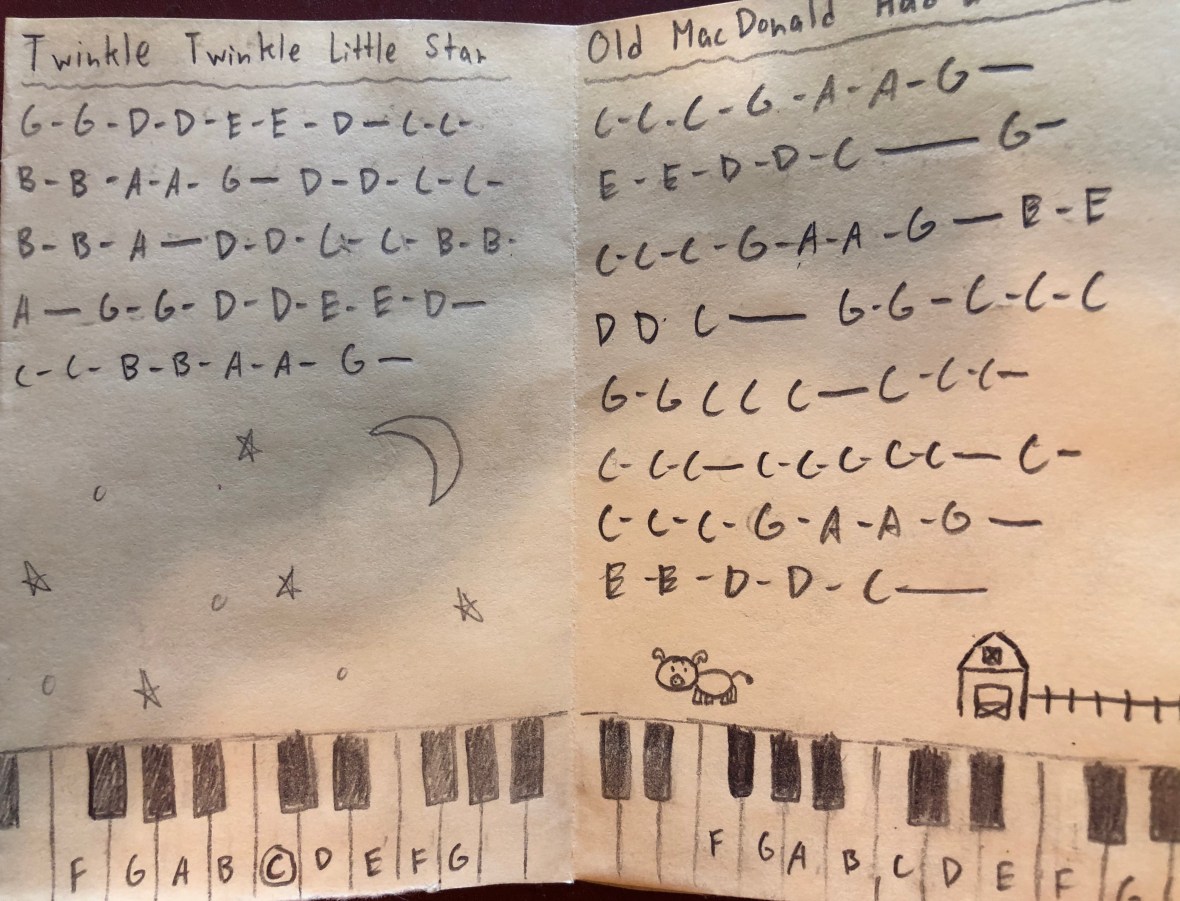 Twinkle Twinkle Little Star
G-G-D-D-E-E-D—C-C-
B-B-A-A-G—D-D-C-C-
B-B-A—D-D-C-C-B-B-
A—G-G-D-D-E-E-D—
C-C-B-B-A-A-G—
F G A B C D E F G
Old MacDonald Had
C-C-C-G-A-A-G—
E-E-D-D-C—G-
C-C-C-G-A-A-G—E-E
D D C—G-G-C-C-C
G-G C C C—C-C-C-
C-C-C—C-C-C-C-C—C-
C-C-C-G-A-A-G—
E-E-D-D-C—
F G A B C D E F G